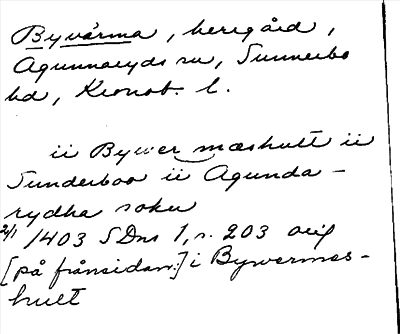 Byvärma, herrgård,
Agunnaryds sn, Sunnerbo
hd, Kronob. l.
ii Bywer mæshult ii
Sunderboo ii Agunda-
rydha sokn
2/1 1403 SDns 1, s. 203 orig
[på frånsidan:] i Bywermes-
hult